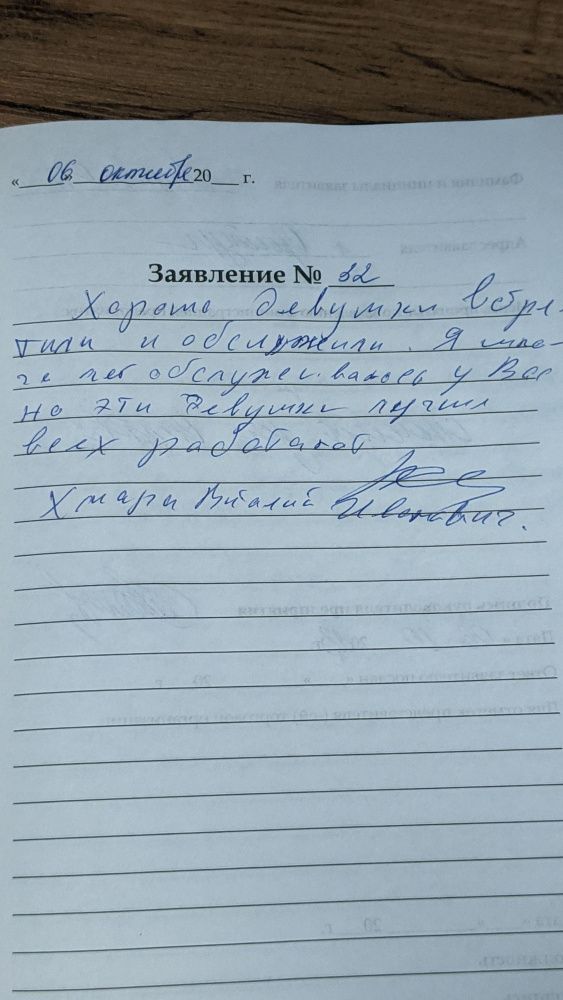 « 06 » октября 20___ г.
Заявление № 32
Хорошо девушки встре-
тили и обслужили. Я мно-
го лет обслуживаюсь у Вас
но эти девушки лучше
всех работают
Хмара Виталий Иванович.